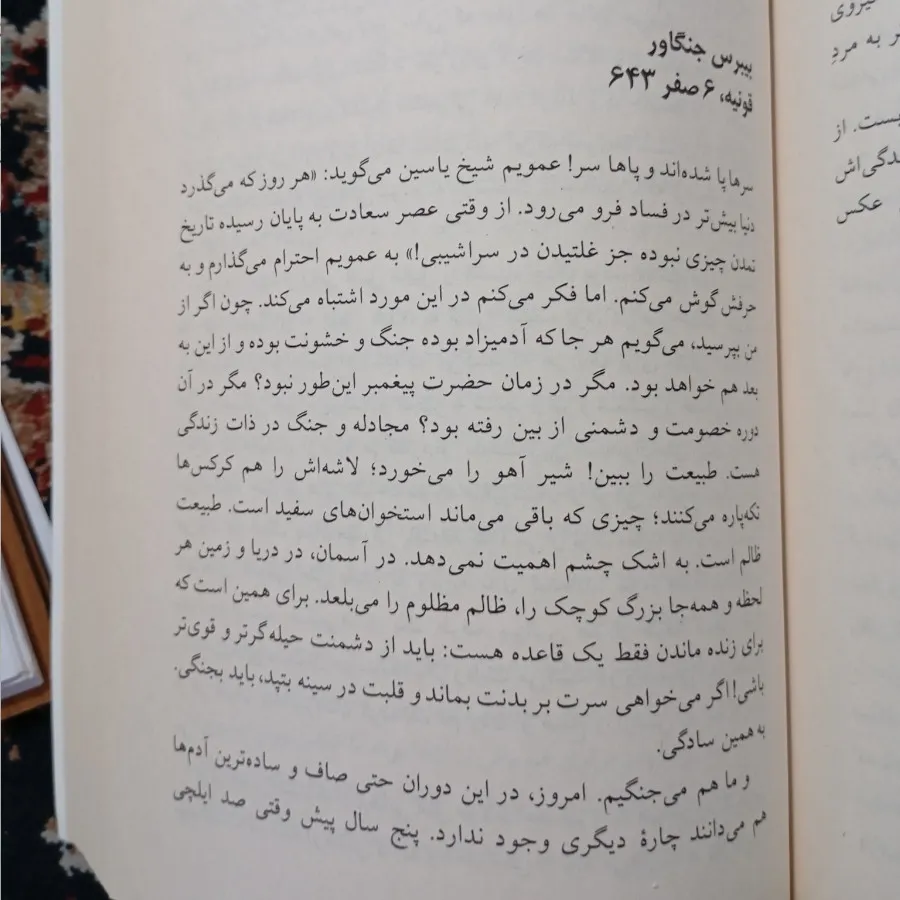 بیبرس جنگاور
قونیه، ۶ صفر ۶۴۳
سرها پا شده‌اند و پاها سر! عمویم شیخ یاسین می‌گوید: «هر روز که می‌گذرد
دنیا بیش‌تر در فساد فرو می‌رود. از وقتی عصر سعادت به پایان رسیده تاریخ
تمدن چیزی نبوده جز غلتیدن در سراشیبی!» به عمویم احترام می‌گذارم و به
حرفش گوش می‌کنم. اما فکر می‌کنم در این مورد اشتباه می‌کند. چون اگر از
من بپرسید، می‌گویم هر جا که آدمیزاد بوده جنگ و خشونت بوده و از این به
بعد هم خواهد بود. مگر در زمان حضرت پیغمبر این‌طور نبود؟ مگر در آن
دوره خصومت و دشمنی از بین رفته بود؟ مجادله و جنگ در ذات زندگی
هست. طبیعت را ببین! شیر آهو را می‌خورد؛ لاشه‌اش را هم کرکس‌ها
تکه‌پاره می‌کنند؛ چیزی که باقی می‌ماند استخوان‌های سفید است. طبیعت
ظالم است. به اشک چشم اهمیت نمی‌دهد. در آسمان، در دریا و زمین هر
لحظه و همه‌جا بزرگ کوچک را، ظالم مظلوم را می‌بلعد. برای همین است که
برای زنده ماندن فقط یک قاعده هست: باید از دشمنت حیله‌گرتر و قوی‌تر
باشی! اگر می‌خواهی سرت بر بدنت بماند و قلبت در سینه بتپد، باید بجنگی.
به همین سادگی.
و ما هم می‌جنگیم. امروز، در این دوران حتی صاف و ساده‌ترین آدم‌ها
هم می‌دانند چارهٔ دیگری وجود ندارد. پنج سال پیش وقتی صد ایلچی
ر به مردِ
یست. از
ندگی‌اش
عکس